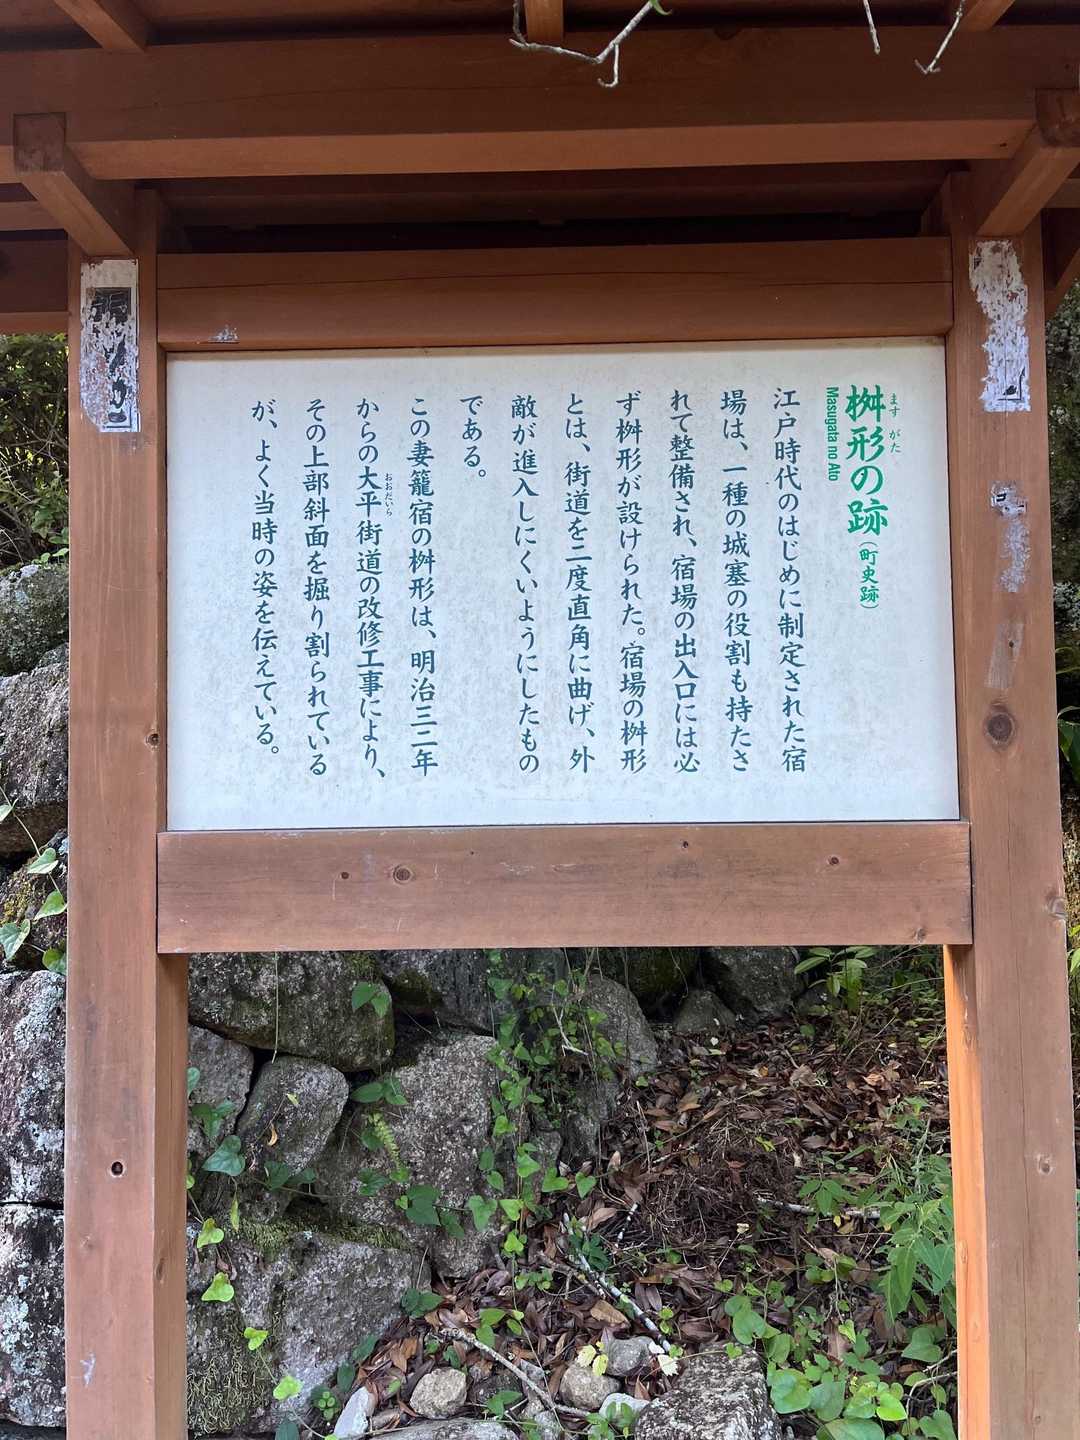 桝形の跡（町史跡）
ます がた
Masugata no Ato
江戸時代のはじめに制定された宿
場は、一種の城塞の役割も持たさ
れて整備され、宿場の出入口には必
ず桝形が設けられた。宿場の桝形
とは、街道を二度直角に曲げ、外
敵が進入しにくいようにしたもの
である。
この妻籠宿の桝形は、明治三二年
からの大平街道の改修工事により、
おおだいら
その上部斜面を掘り割られている
が、よく当時の姿を伝えている。